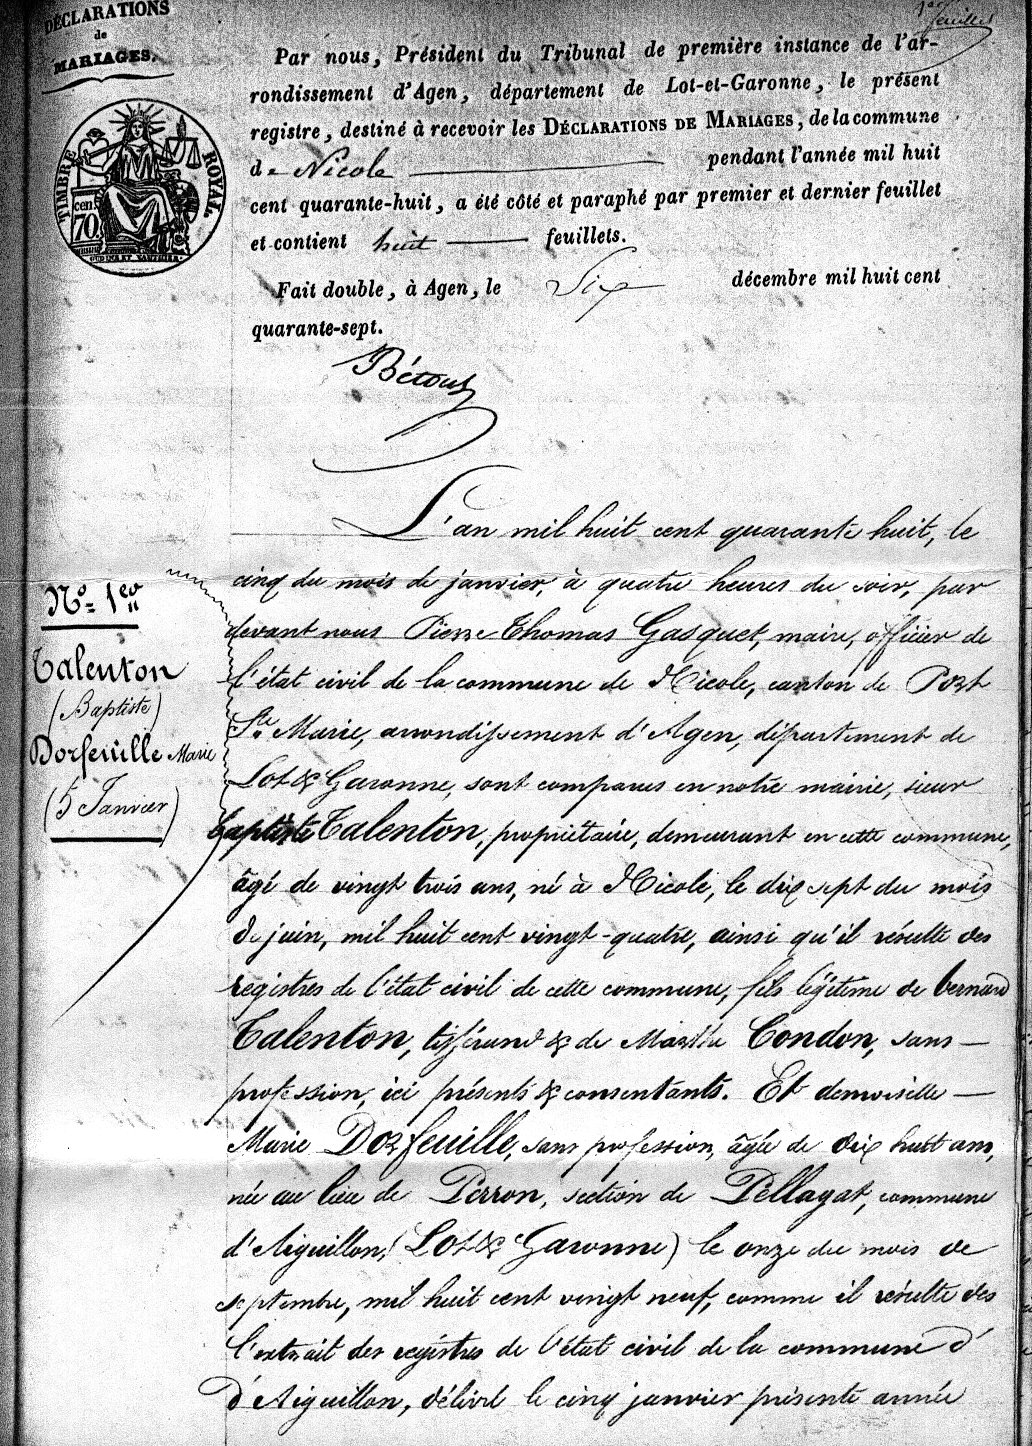 DÉCLARATIONS
de
MARIAGES.
1er
feuillet
TIMBRE ROYAL.
cen. 70
Par nous, Président du Tribunal de première instance de l'ar-
rondissement d'Agen, département de Lot-et-Garonne, le présent
registre, destiné à recevoir les DÉCLARATIONS DE MARIAGES, de la commune
de Nicole pendant l'année mil huit
cent quarante-huit, a été côté et paraphé par premier et dernier feuillet
et contient huit feuillets.
Fait double, à Agen, le Six décembre mil huit cent
quarante-sept.
L'an mil huit cent quarante huit, le
cinq du mois de janvier, à quatre heures du soir, par
devant nous Pierre Thomas Gasquet, maire, officier de
l'état civil de la commune de Nicole, canton de Port
Ste Marie, arrondissement d'Agen, département de
Lot & Garonne, sont comparus en notre mairie, sieur
baptiste Talenton, propriétaire, demeurant en cette commune,
âgé de vingt trois ans, né à Nicole, le dix sept du mois
de juin, mil huit cent vingt-quatre, ainsi qu'il résulte des
registres de l'état civil de cette commune, fils légitime de bernard
Talenton, tisserand & de Marthe Condon, sans
profession, ici présents & consentants. Et demoiselle
Marie Dorfeuille, sans profession, âgée de dix huit ans,
née au lieu de Perron, section de Pellagat, commune
d'Aiguillon, (Lot & Garonne) le onze du mois de
septembre, mil huit cent vingt neuf, comme il résulte des
l'extrait des registres de l'état civil de la commune d'
d'Aiguillon, délivré le cinq janvier présente année
No. 1er
Talenton
(Baptiste)
Dorfeuille Marie
(5 Janvier)